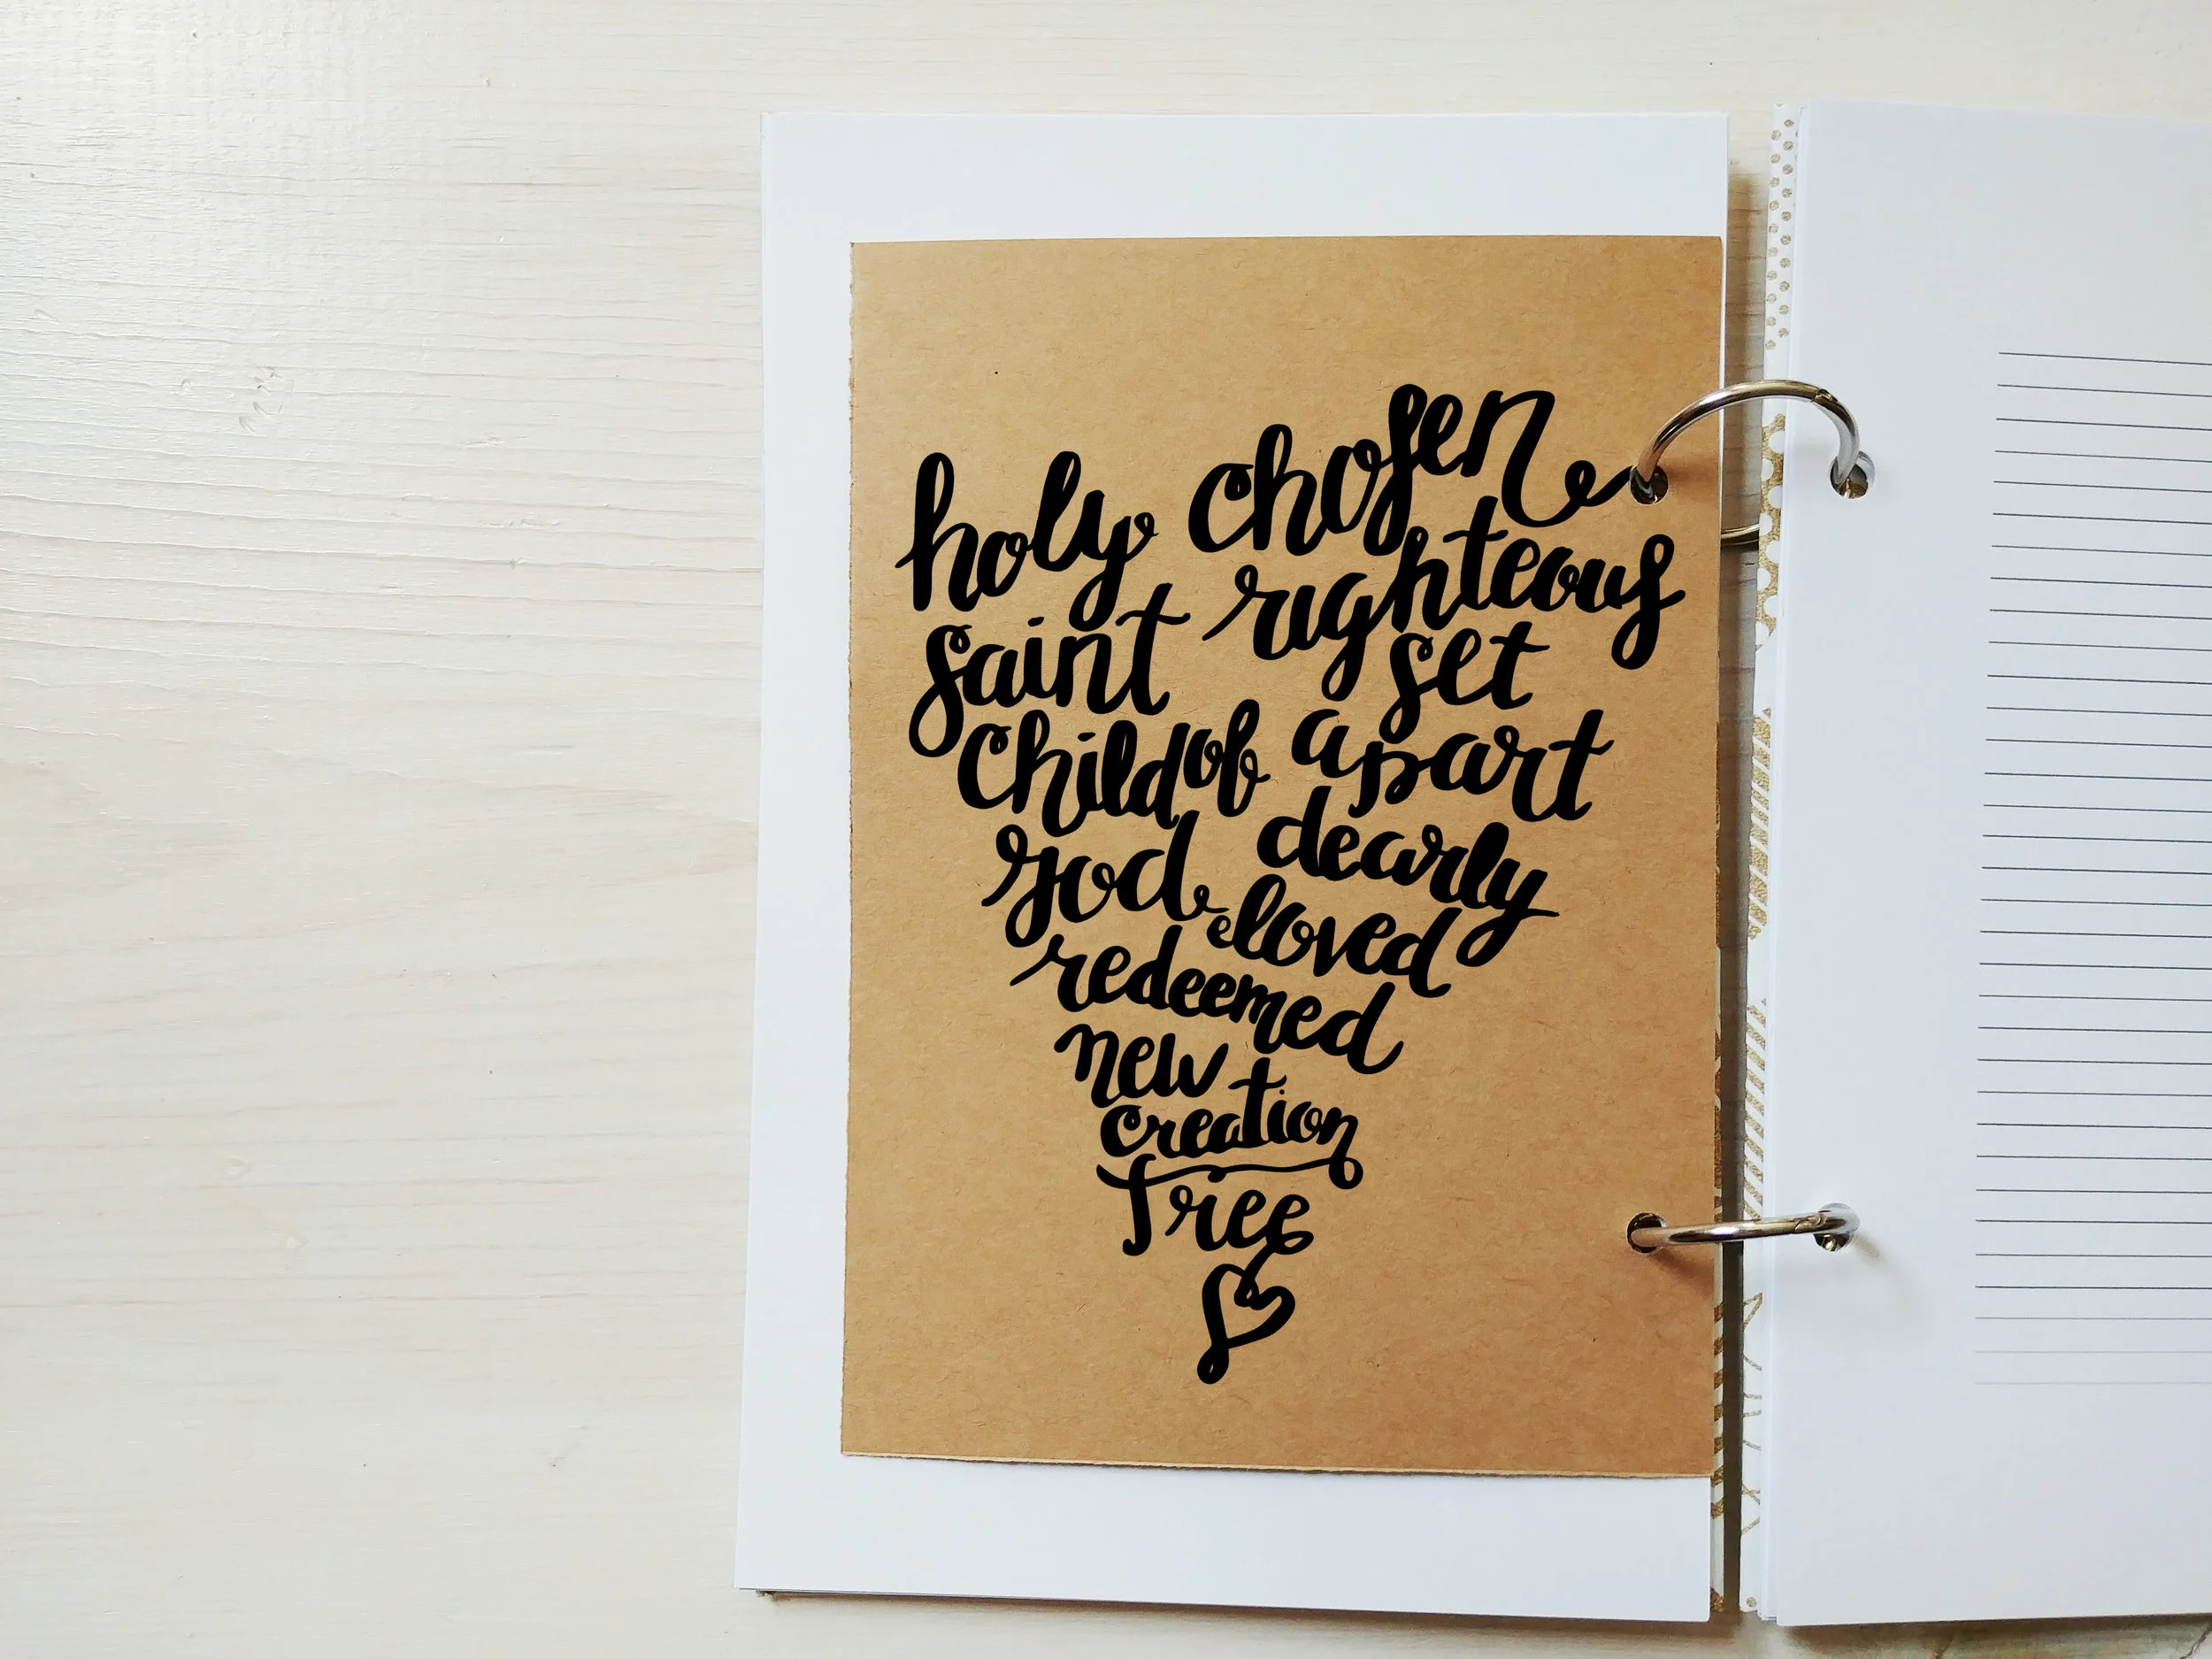 holy chosen
saint righteous
set
child of apart
god dearly
loved
redeemed
new
creation
free